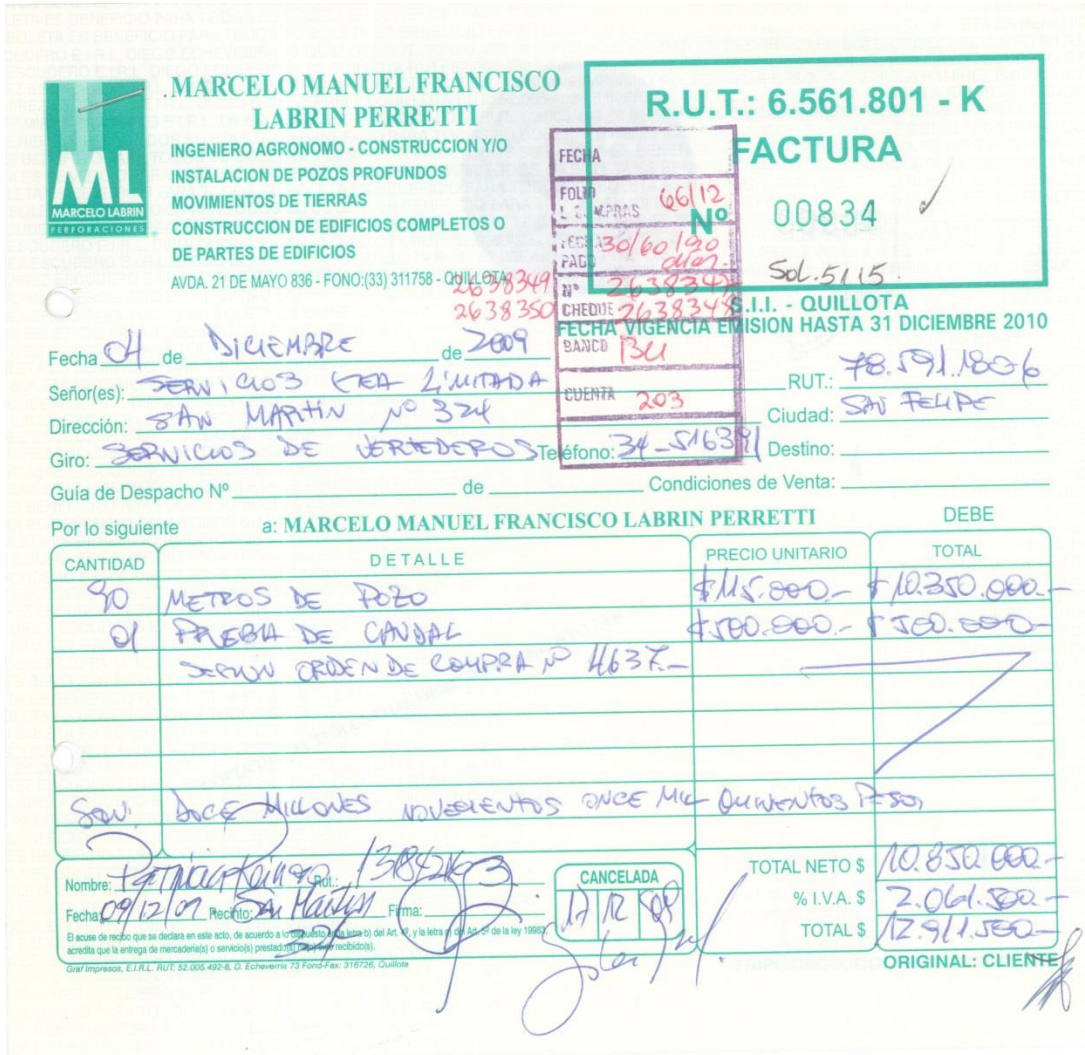 MARCELO MANUEL FRANCISCO
LABRIN PERRETTI
INGENIERO AGRONOMO - CONSTRUCCION Y/O
INSTALACION DE POZOS PROFUNDOS
MOVIMIENTOS DE TIERRAS
CONSTRUCCION DE EDIFICIOS COMPLETOS O
DE PARTES DE EDIFICIOS
AVDA. 21 DE MAYO 836 - FONO:(33) 311758 - QUILLOTA
ML
MARCELO LABRIN
PERFORACIONES
R.U.T.: 6.561.801 - K
FACTURA
Nº 00834
Sol. 5115.
S.I.I. - QUILLOTA
FECHA VIGENCIA EMISION HASTA 31 DICIEMBRE 2010
FECHA
FOLIO 66/12
L. COMPRAS
FECHA 30/60/90
PAGO
Nº 2638347
CHEQUE 2638348
2638349
2638350
BANCO
CUENTA 203
Fecha 04 de DICIEMBRE de 2009
Señor(es): SERVICIOS LIMITADA RUT.: 78.591.180-6
Dirección: SAN MARTIN Nº 324 Ciudad: SAN FELIPE
Giro: SERVICIOS DE VERTEDEROS Teléfono: 34-516391 Destino:
Guía de Despacho Nº de Condiciones de Venta:
Por lo siguiente a: MARCELO MANUEL FRANCISCO LABRIN PERRETTI DEBE
CANTIDAD DETALLE PRECIO UNITARIO TOTAL
90 METROS DE POZO $115.000.- $10.350.000.-
01 PRUEBA DE CAUDAL $500.000.- $500.000-
SEGUN ORDEN DE COMPRA Nº 4637.-
SON: DOCE MILLONES NOVECIENTOS ONCE MIL QUINIENTOS PESOS
TOTAL NETO $ 10.850.000.-
% I.V.A. $ 2.061.500.-
TOTAL $ 12.911.500-
Nombre: Rut.:
Fecha: 09/12/09 Recinto: San Martin Firma:
324
CANCELADA
17 12 09
El acuse de recibo que se declara en este acto, de acuerdo a lo dispuesto en la letra b) del Art. 4º, y la letra c) del Art. 5º de la ley 19983,
acredita que la entrega de mercadería(s) o servicio(s) prestado(s) recibido(s).
Graf Impresos, E.I.R.L. RUT: 52.005.492-8, D. Echeverria 73 Fond-Fax: 316726, Quillota
ORIGINAL: CLIENTE